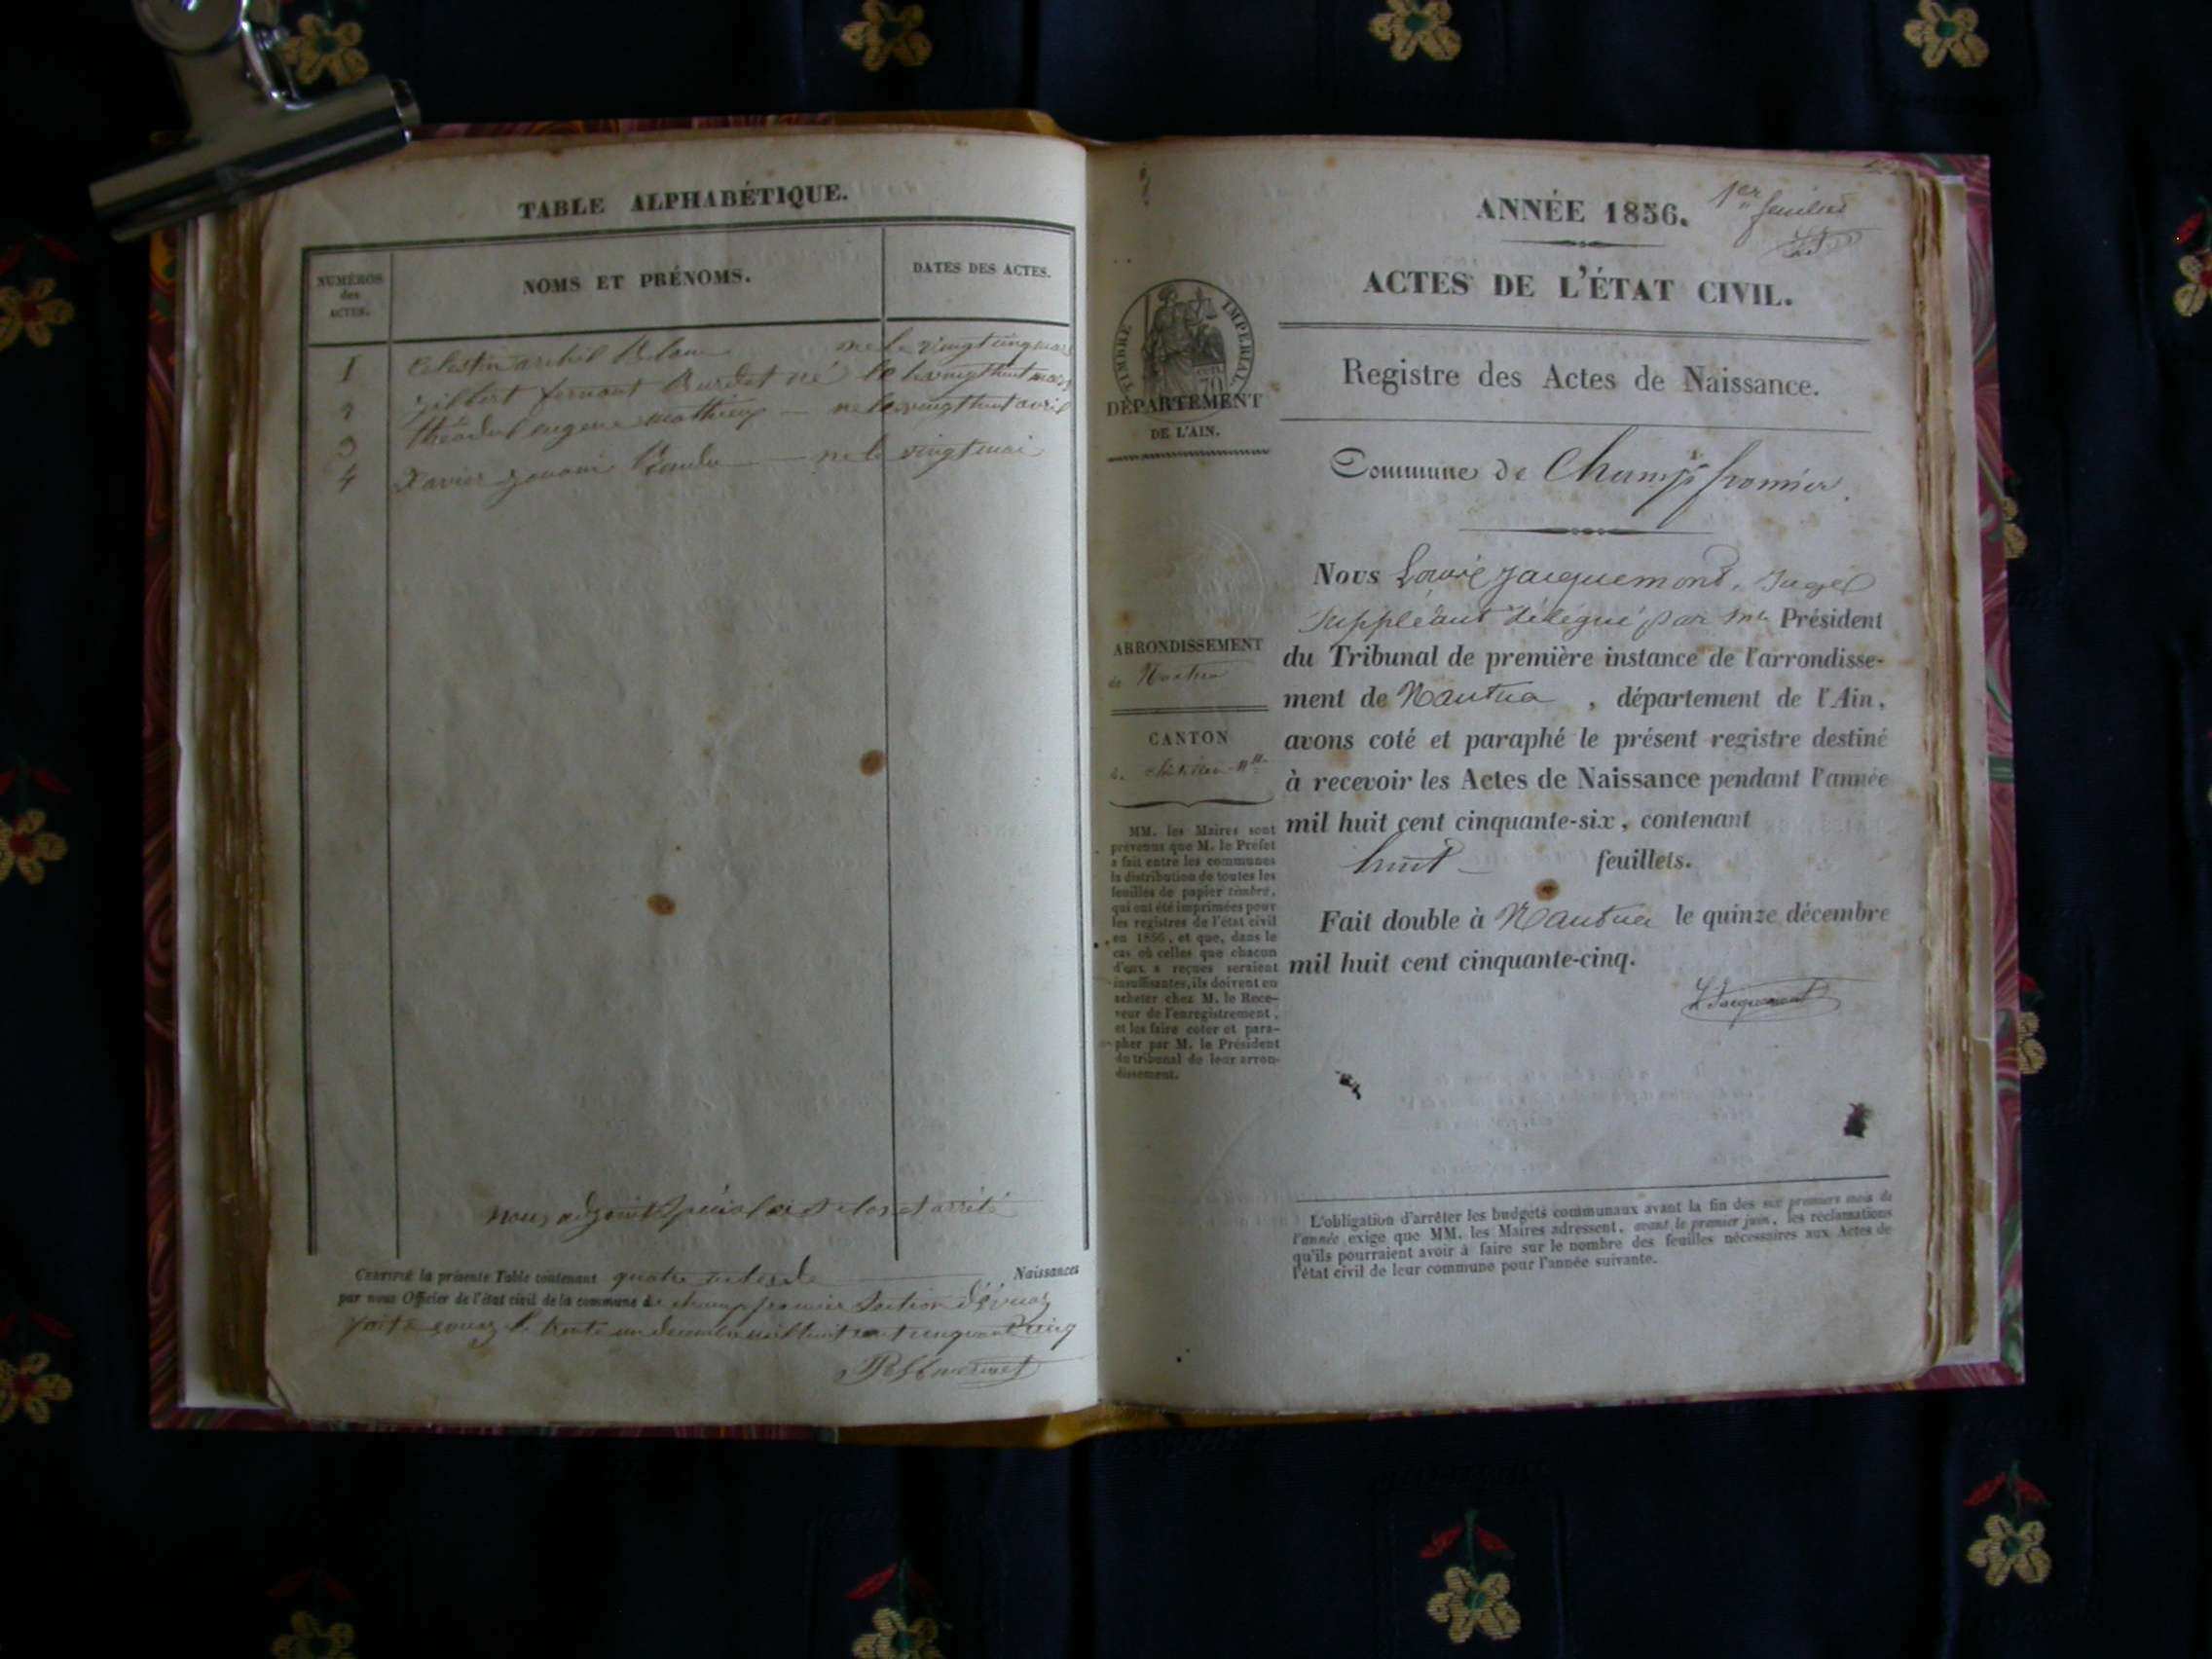 TABLE ALPHABÉTIQUE.
NUMÉROS
des
ACTES.
NOMS ET PRÉNOMS.
DATES DES ACTES.
1 Celestin né le vingt cinq mars
2 fernant Burdet né le vingt huit mars
3 eugene mathieu né le vingt huit avril
4 Xavier né le vingt mai
Nous adjoint spécial clos et arrêté
CERTIFIÉ la présente Table contenant quatre Naissances
par nous Officier de l'état civil de la commune de champfromier Section
le trente un mil huit cent cinquante cinq
ANNÉE 1856.
1er feuillet
ACTES DE L'ÉTAT CIVIL.
TIMBRE IMPÉRIAL
70
DÉPARTEMENT
DE L'AIN.
Registre des Actes de Naissance.
Commune de Champfromier.
Nous Louis Jacquemond, Juge
Suppléant délégué par Mr Président
ARRONDISSEMENT
de Nantua
du Tribunal de première instance de l'arrondisse-
ment de Nantua, département de l'Ain,
CANTON
avons coté et paraphé le présent registre destiné
à recevoir les Actes de Naissance pendant l'année
mil huit cent cinquante-six, contenant
huit feuillets.
Fait double à Nantua le quinze décembre
mil huit cent cinquante-cinq.
L Jacquemond
MM. les Maires sont
prévenus que M. le Préfet
a fait entre les communes
la distribution de toutes les
feuilles de papier timbré,
qui ont été imprimées pour
les registres de l'état civil
en 1856, et que, dans le
cas où celles que chacun
d'eux a reçues seraient
insuffisantes, ils doivent en
acheter chez M. le Rece-
veur de l'enregistrement,
et les faire coter et para-
pher par M. le Président
du tribunal de leur arron-
dissement.
L'obligation d'arrêter les budgets communaux avant la fin des six premiers mois de
l'année exige que MM. les Maires adressent, avant le premier juin, les réclamations
qu'ils pourraient avoir à faire sur le nombre des feuilles nécessaires aux Actes de
l'état civil de leur commune pour l'année suivante.